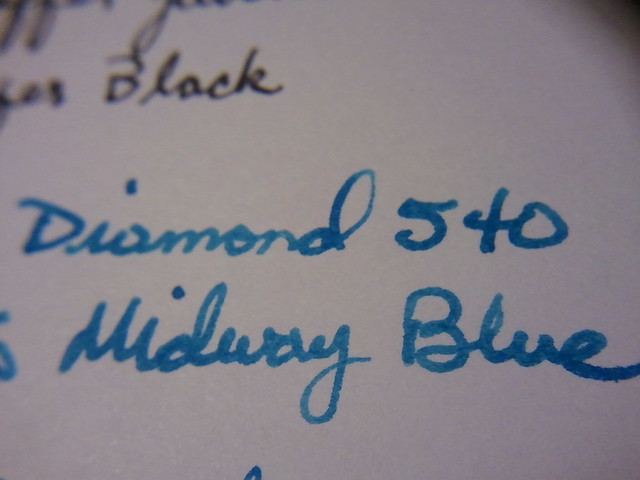 Black
Diamond 540
Midway Blue